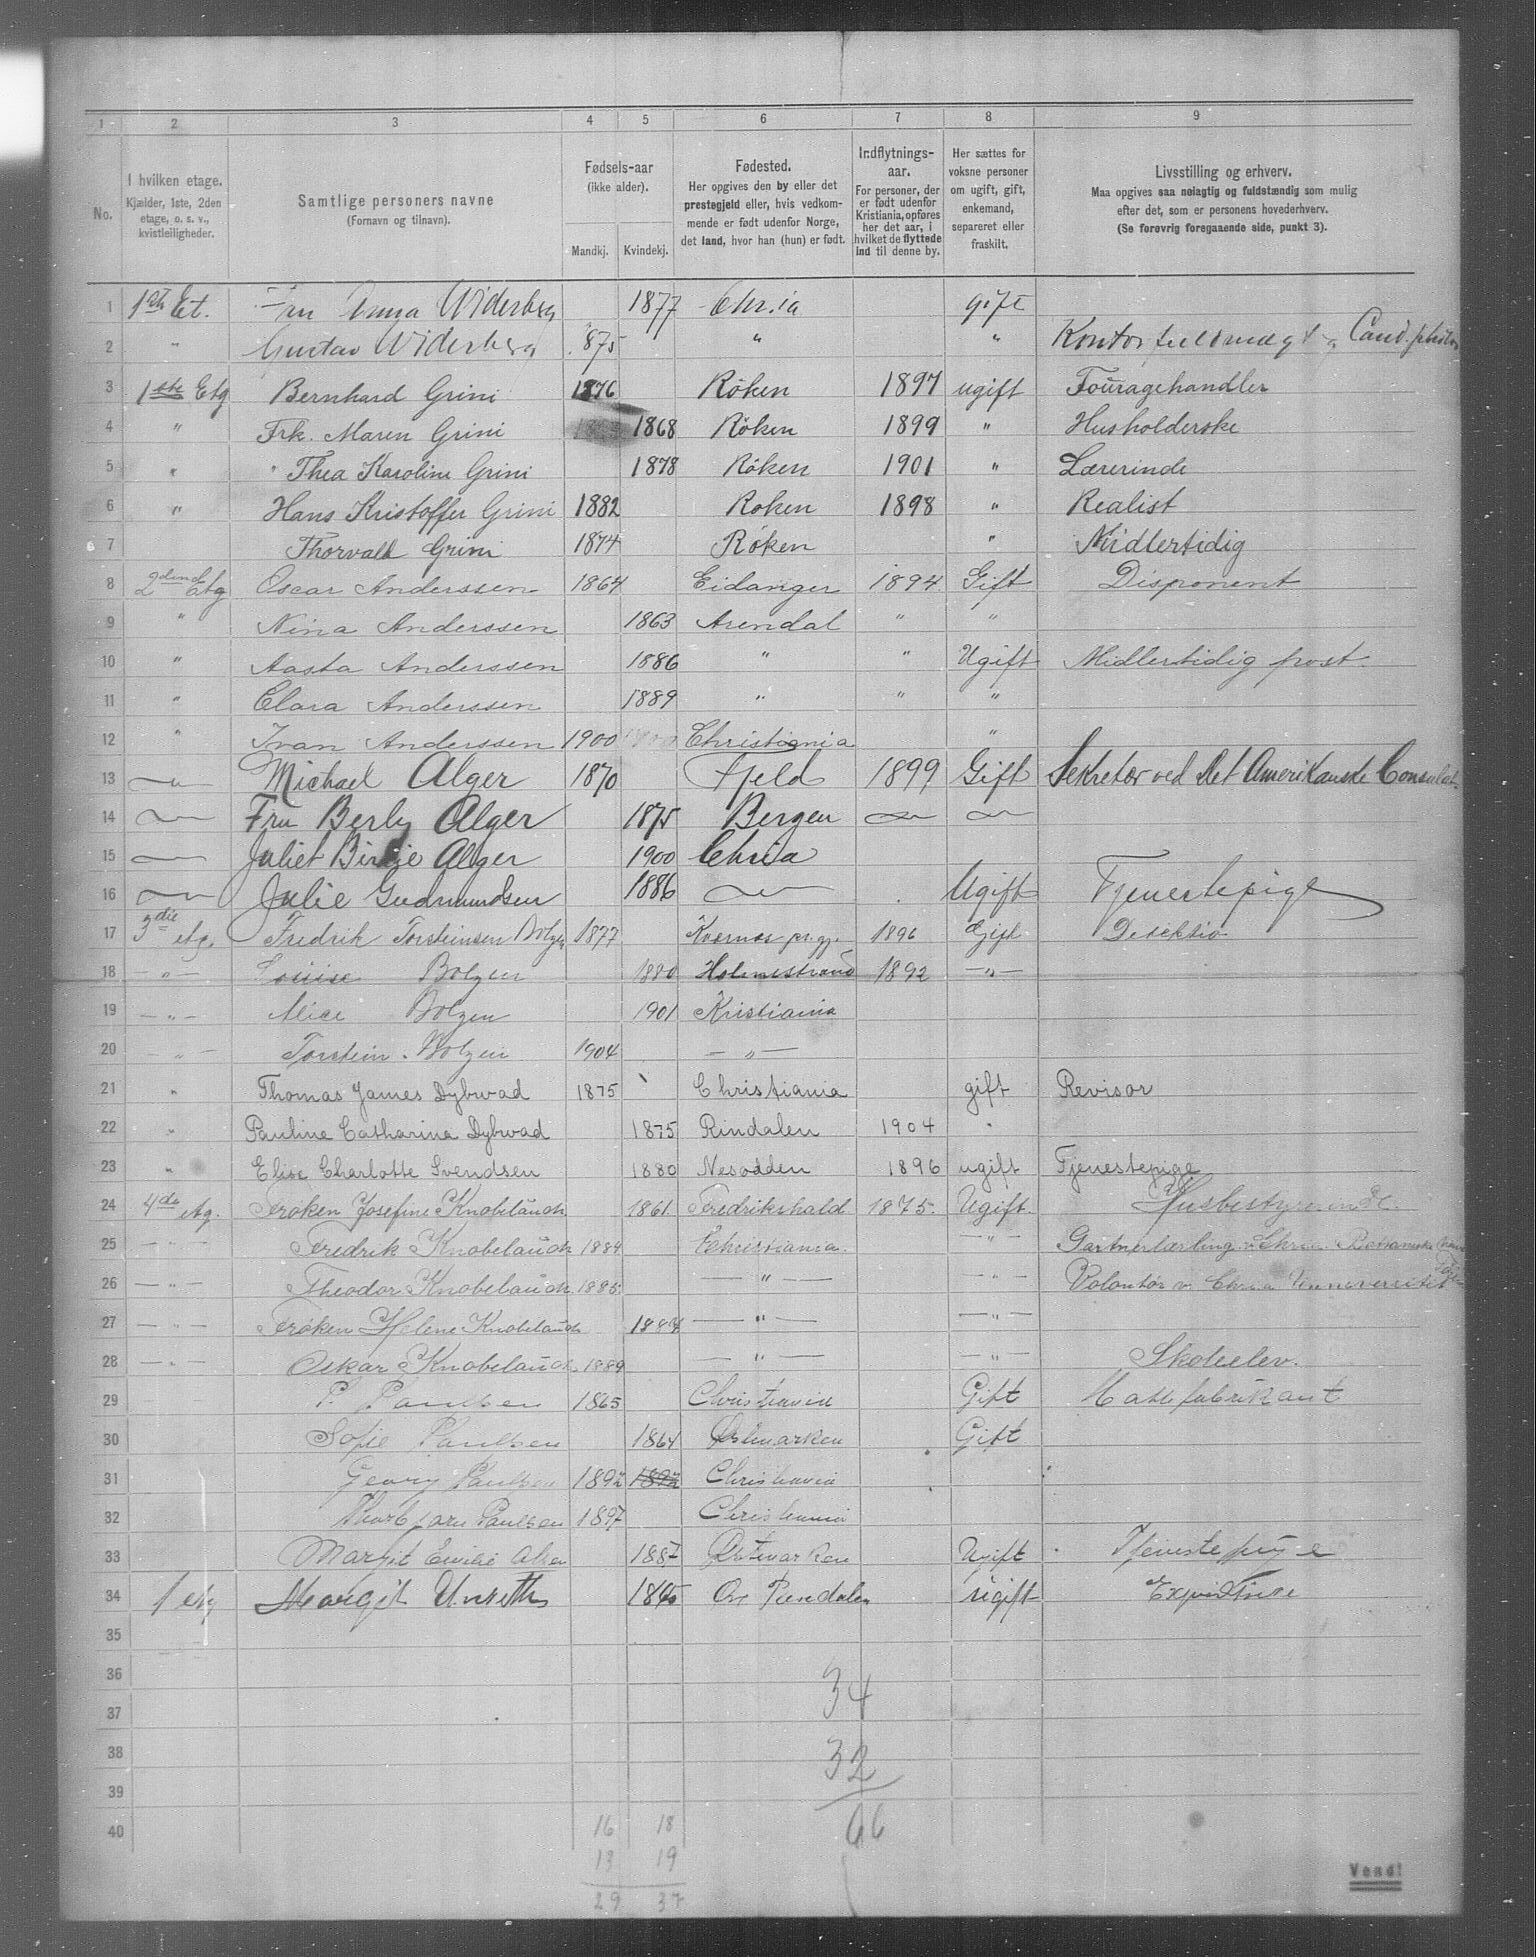 1 2 3 4 5 6 7 8 9
No.
I hvilken etage.
Kjælder, 1ste, 2den
etage, o. s. v.,
kvistleiligheder.
Samtlige personers navne
(Fornavn og tilnavn).
Fødsels-aar
(ikke alder).
Mandkj. Kvindekj.
Fødested.
Her opgives den by eller det
prestegjeld eller, hvis vedkom-
mende er født udenfor Norge,
det land, hvor han (hun) er født.
Indflytnings-
aar.
For personer, der
er født udenfor
Kristiania, opføres
her det aar, i
hvilket de flyttede
ind til denne by.
Her sættes for
voksne personer
om ugift, gift,
enkemand,
separeret eller
fraskilt.
Livsstilling og erhverv.
Maa opgives saa nøiagtig og fuldstændig som mulig
efter det, som er personens hovederhverv.
(Se forøvrig foregaaende side, punkt 3).
1 1ste Et. Fru Anna Widerberg 1877 Chr.ia gift
2 " Gustav Widerberg 1875 " " Kontorfuldmægt Cand. philos
3 1ste Etg Bernhard Grini 1876 Røken 1897 ugift Fouragehandler
4 " Frk. Maren Grini 1868 Røken 1899 " Husholderske
5 " " Thea Karoline Grini 1878 Røken 1901 " Lærerinde
6 " Hans Kristoffer Grini 1882 Røken 1898 " Realist
7 Thorvald Grini 1874 Røken " Midlertidig
8 2den Etg Oscar Anderssen 1864 Eidanger 1894 Gift Disponent
9 " Nina Anderssen 1863 Arendal " "
10 " Aasta Anderssen 1886 " " Ugift Midlertidig post.
11 " Clara Anderssen 1889 " " "
12 " Ivan Anderssen 1900 Christiania "
13 Michael Alger 1870 Fjeld 1899 Gift Sekretær ved Det Amerikanske Consulat
14 Fru Berly Alger 1875 Bergen
15 Juliet Birgie Alger 1900 Chria
16 Julie Gudmundsen 1886 Ugift Tjenestepige
17 3die etg. Fredrik Torsteinsen Bolzen 1877 Kvernæs prgj. 1896 Gift Detektiv
18 — " — Louise Bolzen 1880 Holmestrand 1892 — " —
19 — " — Alice Bolzen 1901 Kristiania
20 — " — Torstein Bolzen 1904 — " —
21 " Thomas James Dybwad 1875 Christiania gift Revisor
22 " Pauline Catharina Dybwad 1875 Rindalen 1904 "
23 " Elise Charlotte Svendsen 1880 Nesodden 1896 ugift Tjenestepige
24 4de etg. Frøken Josefine Knobelauch 1861 Fredrikshald 1875. Ugift. Husbestyrerinde.
25 — " — Fredrik Knobelauch 1884 Christiania. — " — Gartnerlærling v. Chria Botaniske
26 — " — Theodor Knobelauch 1885 — " — — " — Volontør v. Chria Universitet
27 — " — Frøken Helene Knobelauch 1887 — " — — " —
28 — " — Oskar Knobelauch 1889 — " — — " — Skoleelev.
29 P. Paulsen 1865 Christiania Gift Hattefabrikant
30 Sofie Paulsen 1864 Østmarken Gift
31 Georg Paulsen 1892 1892 Christiania
32 Thorbjørn Paulsen 1897 Christiania
33 Margit Emilie Olsen 1887 Østmarken Ugift Tjenestepige
34 1 etg Margit 1845 ugift
35
36
37
38
39
40
34
32
66
16 18
13 19
29 37
Vend!